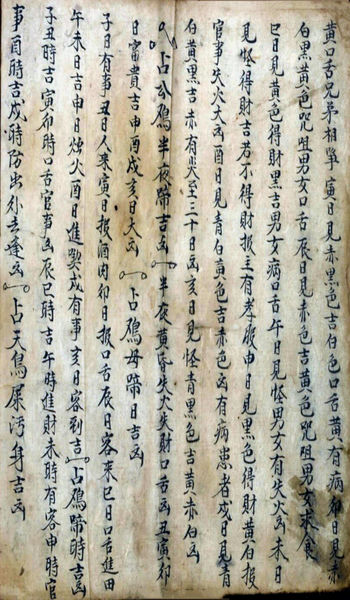 黄口舌兄弟相爭寅日見赤黑色吉白色口舌黄有病卯日見赤
白黑黄色咒咀男女口舌辰日見赤色吉黄色咒咀男女求食
巳日見黄色得財黑吉男女病口舌午日見怪男女有失火凶未日
見怪得財吉若不得財报主有孝服申日見黑色得財黄白报
官事失火大凶酉日見青白黄色吉赤色凶有病患者戌日見青
白黄黑吉赤有災至三十日凶亥日見怪青黑色吉黄赤白凶
占公鷄半夜蹄吉凶 半夜黄昏失火失財口舌凶丑寅卯
日富貴吉申酉戌亥日大凶 占鷄母蹄日吉凶
子日有事丑日人來寅日报酒肉卯日报口舌辰日客來巳日口舌進田
午未日吉申日燭火酉日進契戌有事亥日客到吉 占鷄蹄時吉凶
子丑時吉寅卯時口舌官事凶辰巳時吉午時進財未時有客申時官
事酉時吉戌時防出外去逢凶 占天鳥屎汚身吉凶